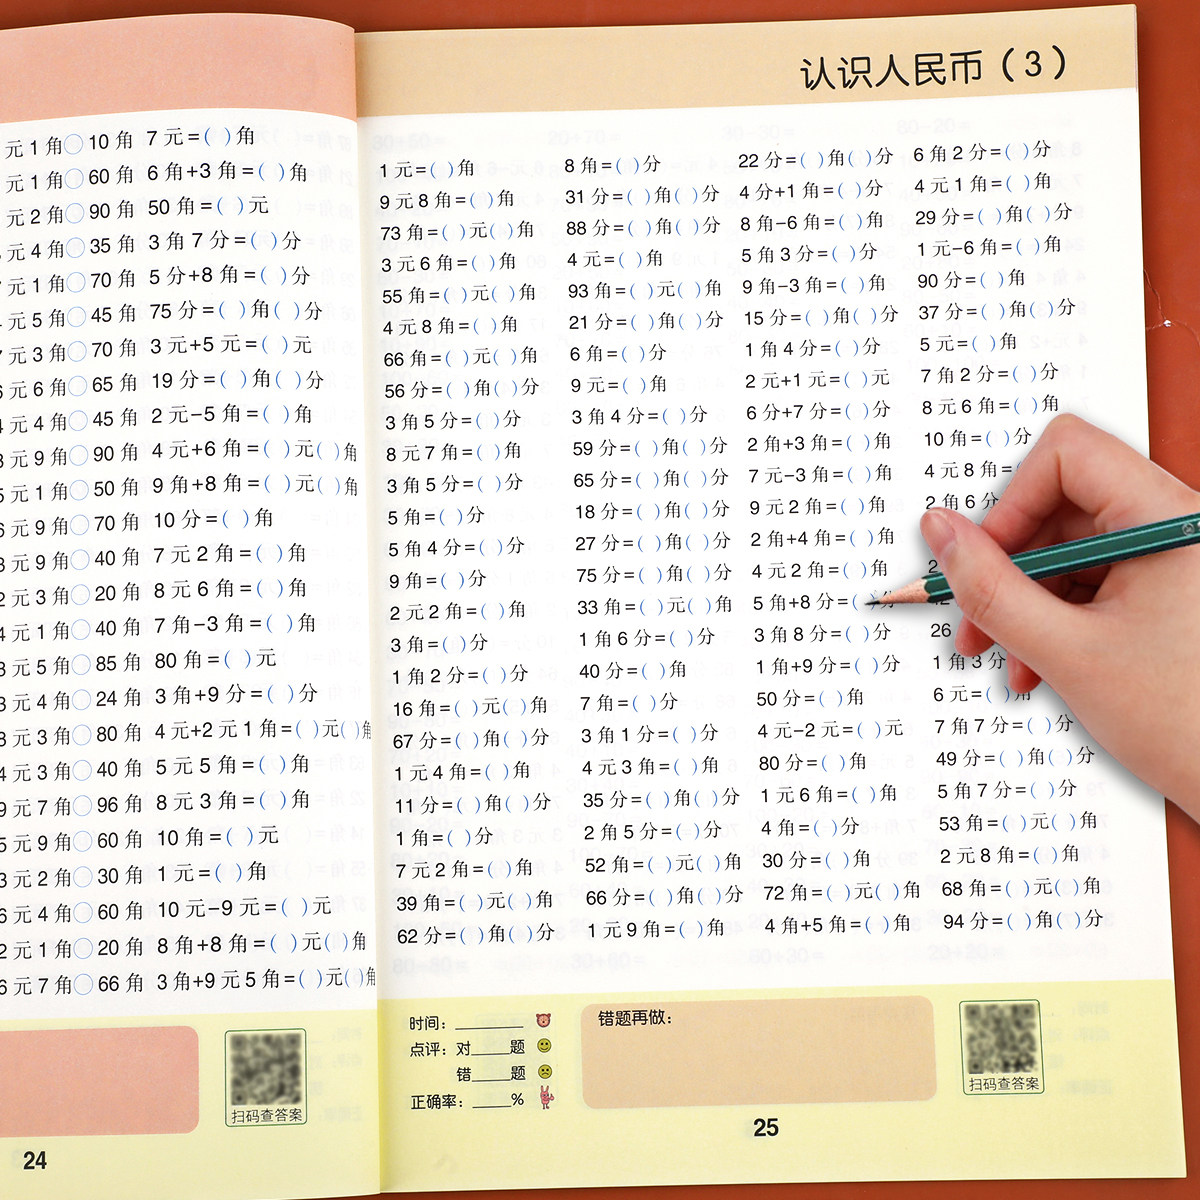 元1角○10角 7元=( )角
元1角○60角 6角+3角=( )角
元2角○90角 50角=( )元
元4角○35角 3角7分=( )分
元1角○70角 5分+8角=( )分
元5角○45角 75分=( )角( )分
元3角○70角 3元+5元=( )元
6元6角○65角 19分=( )角( )分
元4角○45角 2元-5角=( )角
元9角○90角 4元+6角=( )元( )角
元1角○50角 9角+8角=( )元( )角
6元9角○70角 10分=( )角
元9角○40角 7元2角=( )角
2元3角○20角 8元6角=( )角
4元1角○40角 7角-3角=( )角
元5角○85角 80角=( )元
元4角○24角 3角+9分=( )分
元3角○80角 4元+2元1角=( )元( )角
4元3角○40角 5元5角=( )角
9元7角○96角 8元3角=( )角
5元9角○60角 10角=( )元
元2角○30角 1元=( )角
6元4角○60角 10元-9元=( )元
2元1角○20角 8角+8角=( )元( )角
6元7角○66角 3角+9元5角=( )元( )角
扫码查答案
24
认识人民币(3)
1元=( )角
9元8角=( )角
73角=( )元( )角
3元6角=( )角
55角=( )元( )角
4元8角=( )角
66角=( )元( )角
56分=( )角( )分
3角5分=( )分
8元7角=( )角
3角5分=( )分
5角=( )分
5角4分=( )分
9角=( )分
2元2角=( )角
3角=( )分
1角2分=( )分
16角=( )元( )角
67分=( )角( )分
1元4角=( )角
11分=( )角( )分
1角=( )分
7元2角=( )角
39角=( )元( )角
62分=( )角( )分
8角=( )分
31分=( )角( )分
88分=( )角( )分
4元=( )角
93角=( )元( )角
21分=( )角( )分
6角=( )分
9元=( )角
3角4分=( )分
59分=( )角( )分
65分=( )角( )分
18分=( )角( )分
27分=( )角( )分
75分=( )角( )分
33角=( )元( )角
1角6分=( )分
40分=( )角
7角=( )分
3角1分=( )分
4元3角=( )角
35分=( )角( )分
2角5分=( )分
52角=( )元( )角
66分=( )角( )分
1元9角=( )角
22分=( )角( )分
4分+1角=( )分
8角-6角=( )角
5角3分=( )分
9角-3角=( )角
15分=( )角( )分
1角4分=( )分
2元+1元=( )元
6分+7分=( )分
2角+3角=( )角
7元-3角=( )角
9元2角=( )角
2角+4角=( )角
4元2角=( )角
5角+8分=( )分
3角8分=( )分
1角+9分=( )分
50分=( )角
4元-2元=( )元
80分=( )角
1元6角=( )角
4角=( )分
30分=( )角
72角=( )元( )角
4角+5角=( )角
6角2分=( )分
4元1角=( )角
29分=( )角( )分
1元-6角=( )角
90分=( )角
37分=( )角( )分
5元=( )角
7角2分=( )分
8元6角=( )角
10角=( )分
4元8角=(
2角6分
26
1角3分
6元=( )角
7角7分=( )分
49分=( )角( )分
5角7分=( )分
53角=( )元( )角
2元8角=( )角
68角=( )元( )角
94分=( )角( )分
时间：
点评：对____题
错____题
正确率：____%
错题再做：
扫码查答案
25